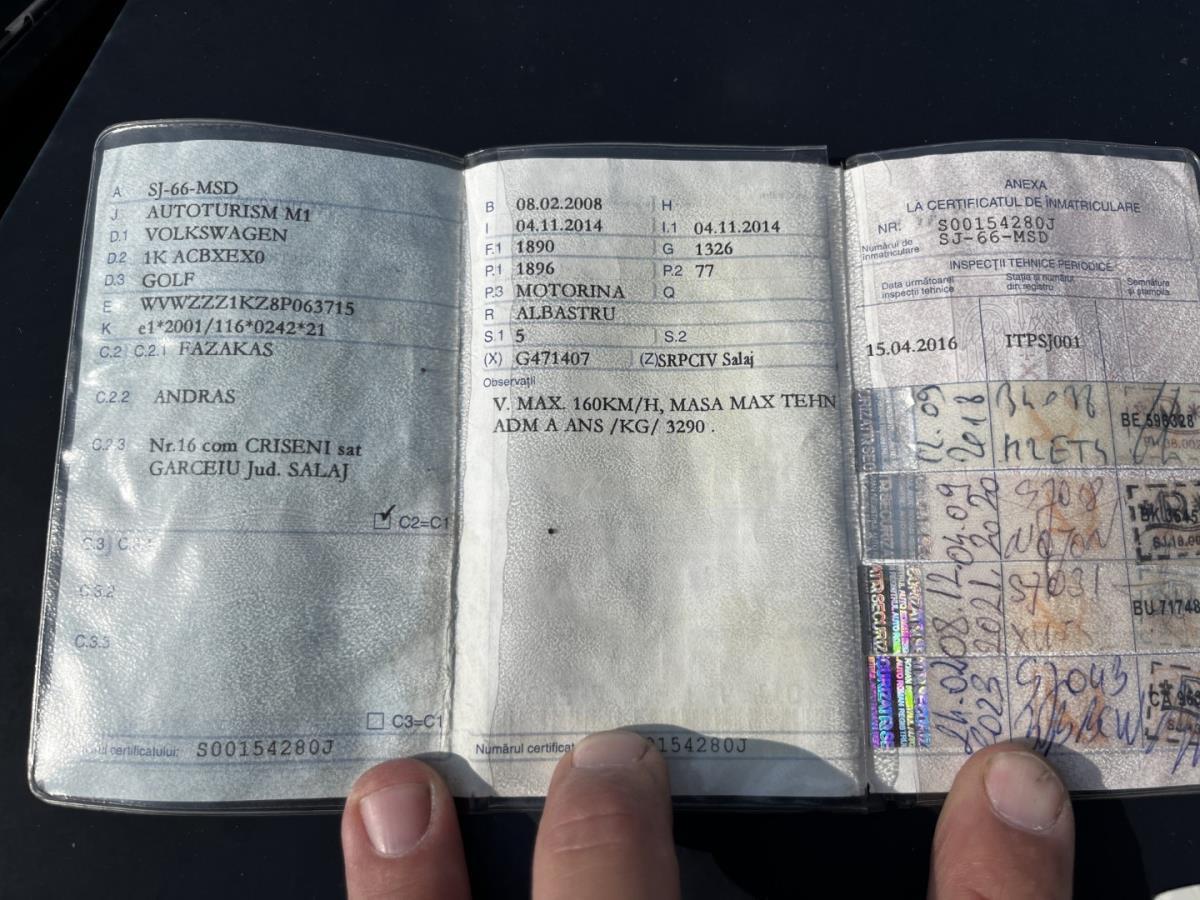 A SJ-66-MSD
J AUTOTURISM M1
D.1 VOLKSWAGEN
D.2 1K ACBXEX0
D.3 GOLF
E WVWZZZ1KZ8P063715
K e1*2001/116*0242*21
C.2 C.2.1 FAZAKAS
C.2.2 ANDRAS
C.2.3 Nr.16 com CRISENI sat
GARCEIU Jud. SALAJ
C2=C1
C.3
C.3.2
C.3.3
C3=C1
certificatului: S00154280J
B 08.02.2008 H
I 04.11.2014 I.1 04.11.2014
F.1 1890 G 1326
P.1 1896 P.2 77
P.3 MOTORINA Q
R ALBASTRU
S.1 5 S.2
(X) G471407 (Z) SRPCIV Salaj
Observații
V. MAX. 160KM/H, MASA MAX TEHN
ADM A ANS /KG/ 3290 .
Numărul certificat 154280J
ANEXA
LA CERTIFICATUL DE ÎNMATRICULARE
NR: S00154280J
Numărul de înmatriculare SJ-66-MSD
INSPECȚII TEHNICE PERIODICE
Data următoarei inspecții tehnice
Stația și numărul din registru
Semnătura și ștampila
15.04.2016 ITPSJ001
12.09 2018
04.09 2020
08.12 2021
24.02 2023